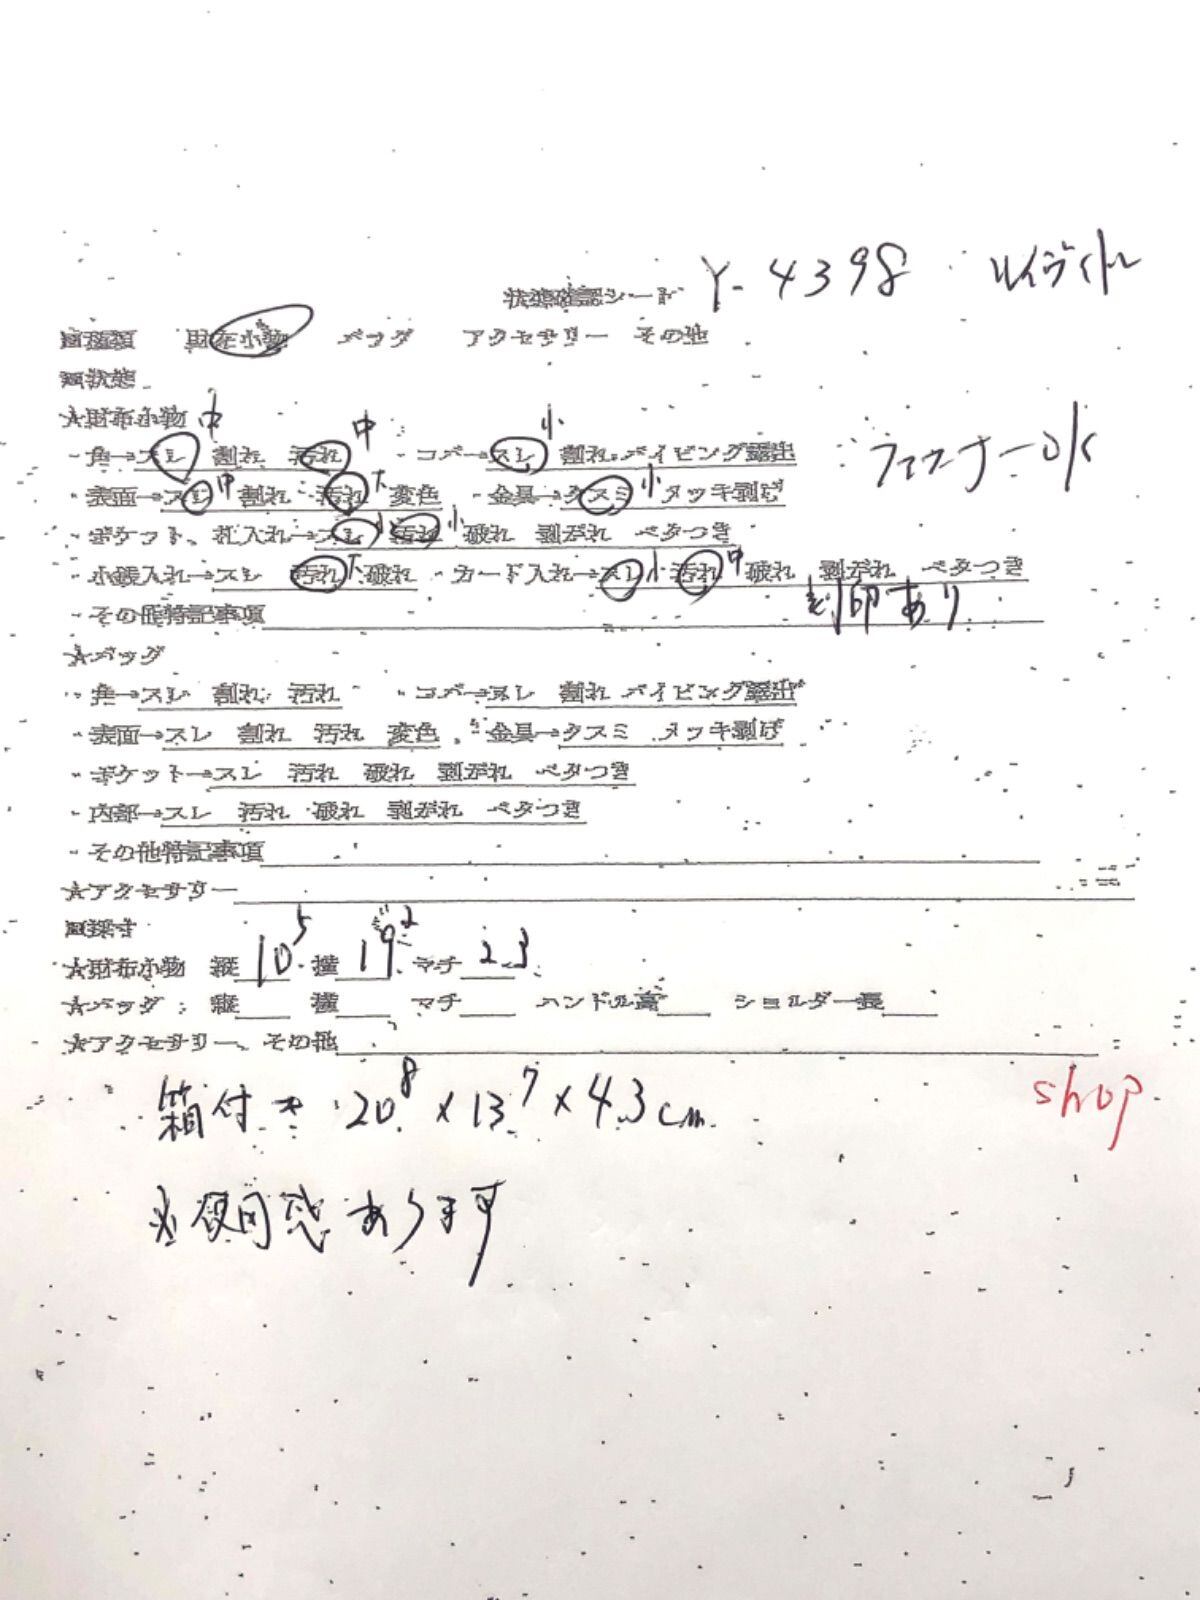 状態確認シート Y-4398 ルイヴィトン
■種類 財布小物 バッグ アクセサリー その他
■状態
★財布小物
・角→スレ 中 割れ 汚れ 中 ・コバ→スレ 小 割れ パイピング露出 ファスナーOK
・表面→スレ 中 割れ 汚れ 大 変色 ・金具→クスミ 小 メッキ剥げ
・ポケット、札入れ→スレ 小 汚れ 小 破れ 剥がれ ベタつき
・小銭入れ→スレ 汚れ 大 破れ ・カード入れ→スレ 小 汚れ 中 破れ 剥がれ ベタつき
・その他特記事項 刻印あり
★バッグ
・角→スレ 割れ 汚れ ・コバ→スレ 割れ パイピング露出
・表面→スレ 割れ 汚れ 変色 ・金具→クスミ メッキ剥げ
・ポケット→スレ 汚れ 破れ 剥がれ ベタつき
・内部→スレ 汚れ 破れ 剥がれ ベタつき
・その他特記事項
★アクセサリー
■採寸
★財布小物 縦 10.5 横 19.2 マチ 2.3
★バッグ：縦 横 マチ ハンドル高 ショルダー長
★アクセサリー、その他
箱付き 20.8×13.7×4.3cm shop
※使用感あります